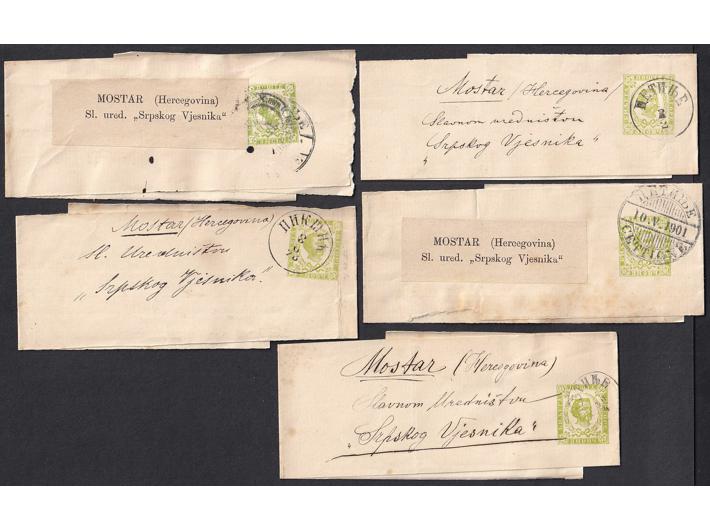 MOSTAR (Hercegovina)
Sl. ured. „Srpskog Vjesnika“
Mostar (Hercegovina)
Slavnom uredništvu
„Srpskog Vjesnika“
ЦЕТИЊЕ
Mostar (Hercegovina)
Sl. Uredništvu
„Srpskog Vjesnika.“
НИКШИЋ
MOSTAR (Hercegovina)
Sl. ured. „Srpskog Vjesnika“
ЦЕТИЊЕ
10.V.1901
CETTIGNE
Mostar (Hercegovina)
Slavnom Uredništvu
„Srpskog Vjesnika“